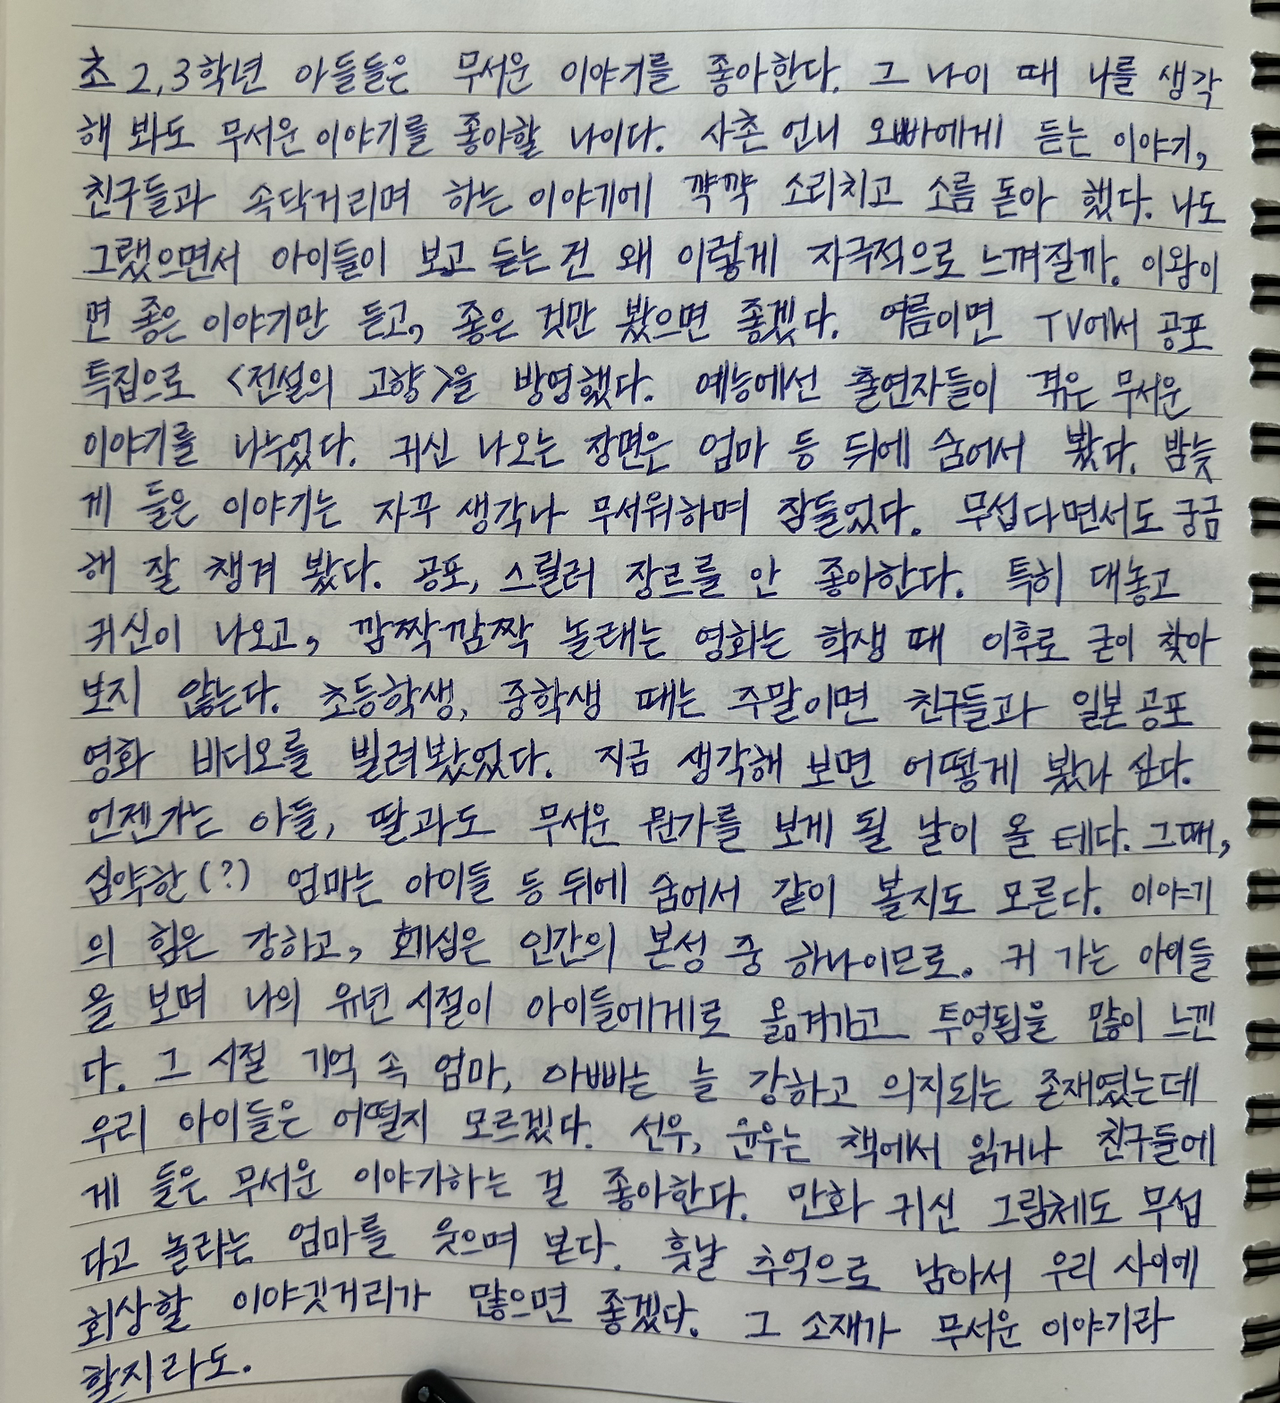 초 2,3학년 아들들은 무서운 이야기를 좋아한다. 그 나이 때 나를 생각
해 봐도 무서운 이야기를 좋아할 나이다. 사촌 언니 오빠에게 듣는 이야기,
친구들과 속닥거리며 하는 이야기에 꺅꺅 소리치고 소름 돋아 했다. 나도
그랬으면서 아이들이 보고 듣는 건 왜 이렇게 자극적으로 느껴질까. 이왕이
면 좋은 이야기만 듣고, 좋은 것만 봤으면 좋겠다. 여름이면 TV에서 공포
특집으로 <전설의 고향>을 방영했다. 예능에선 출연자들이 겪은 무서운
이야기를 나누었다. 귀신 나오는 장면은 엄마 등 뒤에 숨어서 봤다. 밤늦
게 들은 이야기는 자꾸 생각나 무서워하며 잠들었다. 무섭다면서도 궁금
해 잘 챙겨 봤다. 공포, 스릴러 장르를 안 좋아한다. 특히 대놓고
귀신이 나오고, 깜짝깜짝 놀래는 영화는 학생 때 이후로 굳이 찾아
보지 않는다. 초등학생, 중학생 때는 주말이면 친구들과 일본 공포
영화 비디오를 빌려봤었다. 지금 생각해 보면 어떻게 봤나 싶다.
언젠가는 아들, 딸과도 무서운 뭔가를 보게 될 날이 올 테다. 그때,
심약한(?) 엄마는 아이들 등 뒤에 숨어서 같이 볼지도 모른다. 이야기
의 힘은 강하고, 호기심은 인간의 본성 중 하나이므로. 커 가는 아이들
을 보며 나의 유년 시절이 아이들에게로 옮겨가고 투영됨을 많이 느낀
다. 그 시절 기억 속 엄마, 아빠는 늘 강하고 의지되는 존재였는데
우리 아이들은 어떨지 모르겠다. 선우, 윤우는 책에서 읽거나 친구들에
게 들은 무서운 이야기하는 걸 좋아한다. 만화 귀신 그림체도 무섭
다고 놀라는 엄마를 웃으며 본다. 훗날 추억으로 남아서 우리 사이에
회상할 이야깃거리가 많으면 좋겠다. 그 소재가 무서운 이야기라
할지라도.